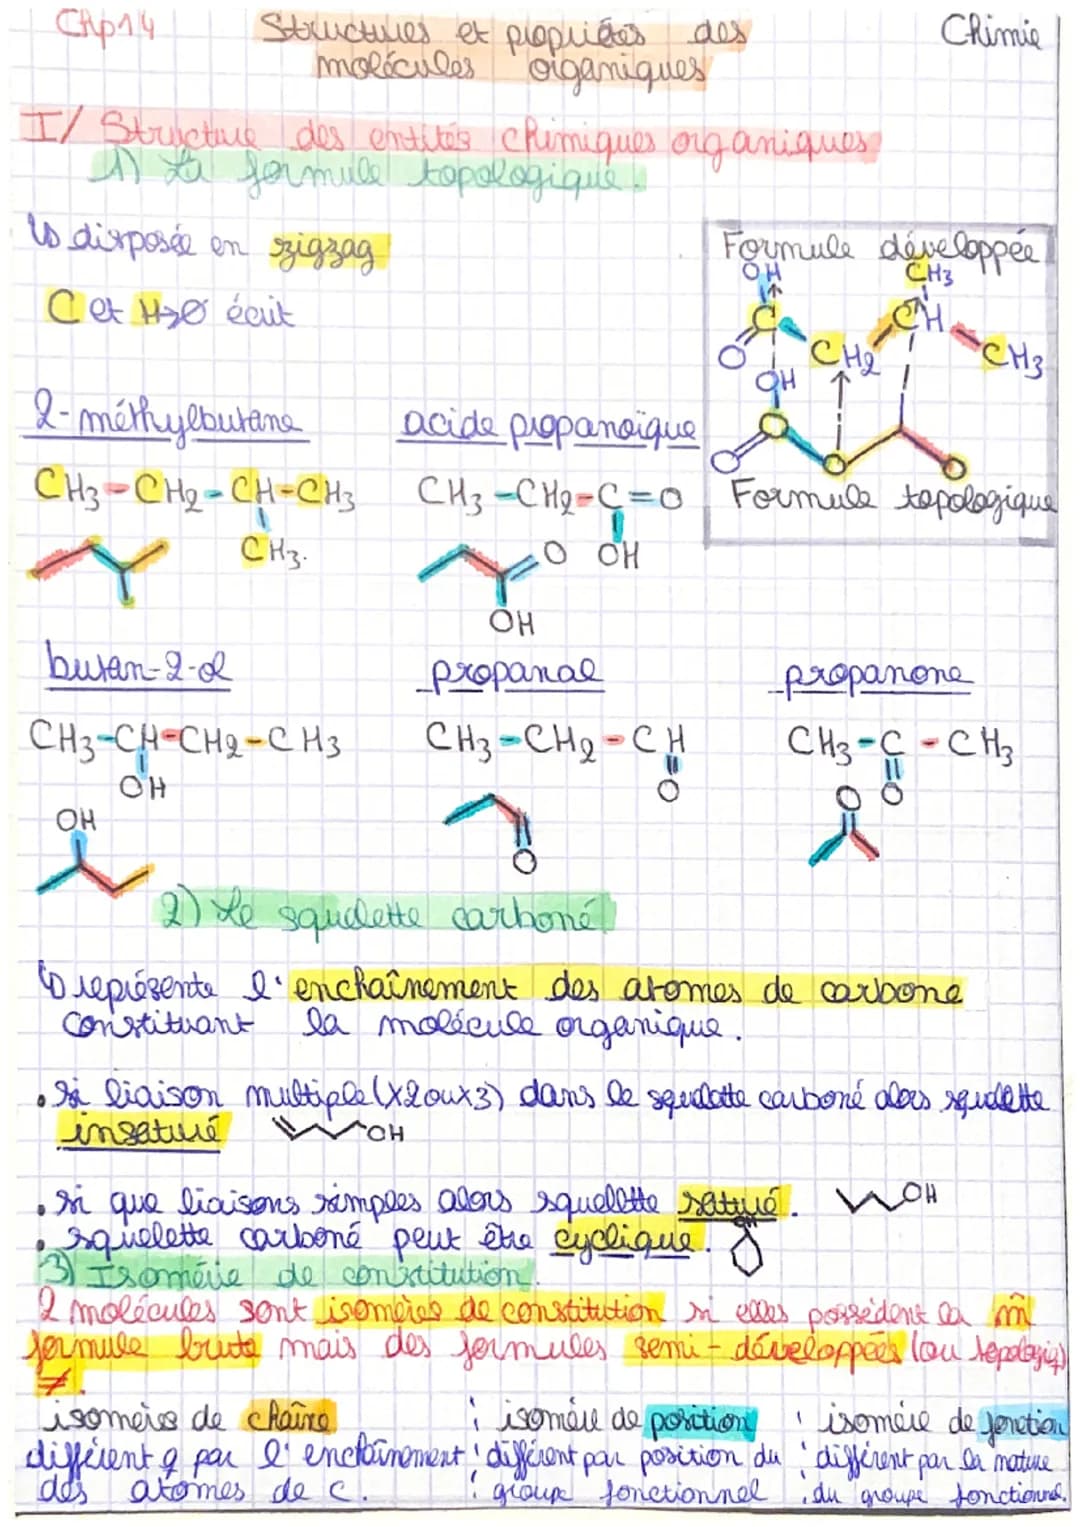 Chp14 Structures et propriétés des Chimie
molécules organiques
I/ Structure des entités chimiques organiques
1) La formule topologique.
↳ disposée en zigzag
C et H → Ø écrit
Formule développée
OH CH3
C CH
O CH2 CH3
OH
Formule topologique
2-méthylbutane acide propanoïque
CH3-CH2-CH-CH3 CH3-CH2-C=O
CH3. O OH
OH
butan-2-ol propanal propanone
CH3-CH-CH2-CH3 CH3-CH2-CH CH3-C-CH3
OH O O
OH O O
2) Le squelette carboné
↳ représente l'enchaînement des atomes de carbone
constituant la molécule organique.
• si liaison multiple (x2 ou x3) dans le squelette carboné alors squelette
insaturé OH
• si que liaisons simples alors squelette saturé. OH
• squelette carboné peut être cyclique. OH
3) Isomérie de constitution.
2 molécules sont isomères de constitution si elles possèdent la m̂
formule brute mais des formules semi-développées (ou topologiq)
≠.
isomères de chaîne isomère de position isomère de fonction
différent q par l'enchaînement différent par position du différent par la nature
des atomes de C. groupe fonctionnel du groupe fonctionnel.